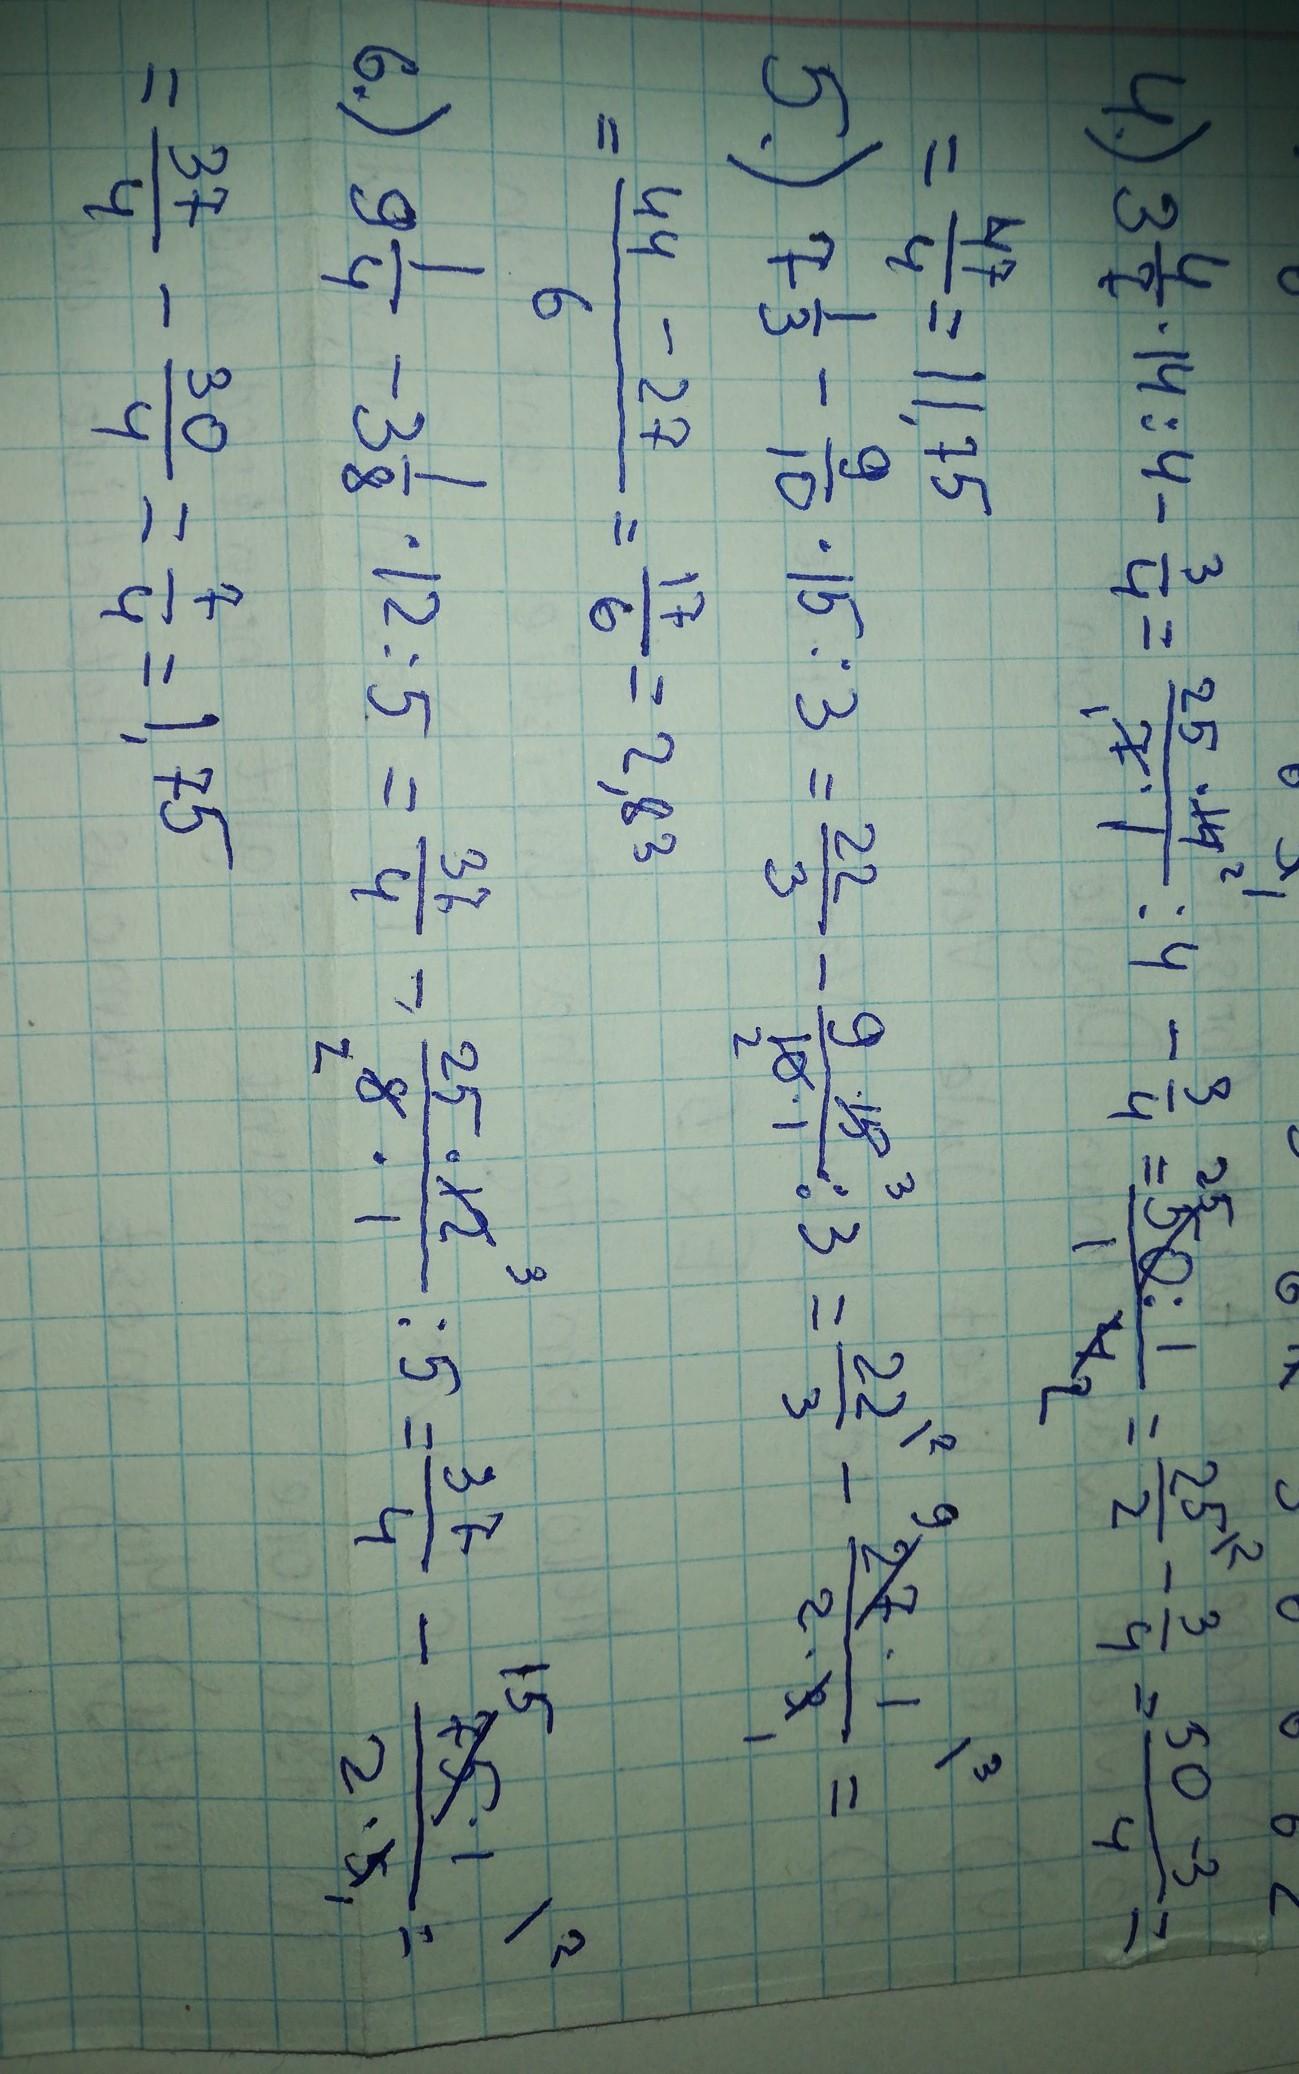 4.) 3 4/7 · 14 : 4 - 3/4 = 25 · 14 2 1 / 1 7 · 1 : 4 - 3/4 = 25 50 · 1 / 1 4 2 = 25/2 \2 - 3/4 = 50 - 3 / 4 =
= 47/4 = 11,75
5.) 7 1/3 - 9/10 · 15 : 3 = 22/3 - 9 · 15 3 / 2 10 · 1 : 3 = 22/3 \2 - 9 27 · 1 / 2 · 3 1 \3 =
= 44 - 27 / 6 = 17/6 = 2,83
6.) 9 1/4 - 3 1/8 · 12 : 5 = 37/4 - 25 · 12 3 / 2 8 · 1 : 5 = 37/4 - 15 75 · 1 / 2 · 5 1 \2 =
= 37/4 - 30/4 = 7/4 = 1,75